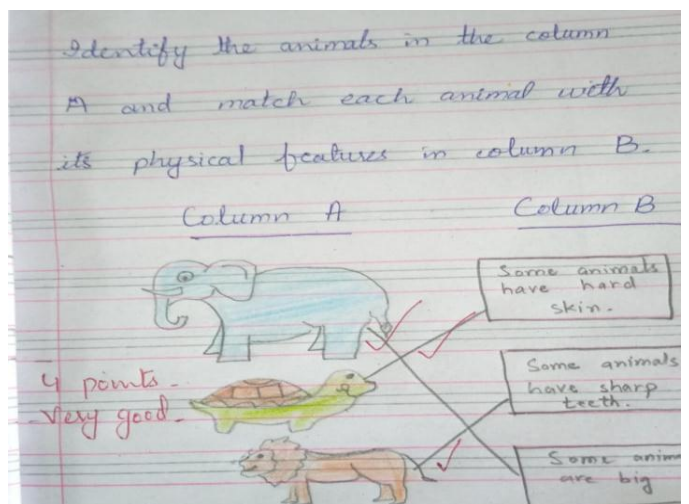 Identify the animals in the column
A and match each animal with
its physical features in column B.
Column A
Column B
Some animals
have hard
skin.
4 points.
Very good.
Some animals
have sharp
teeth.
Some anim
are big